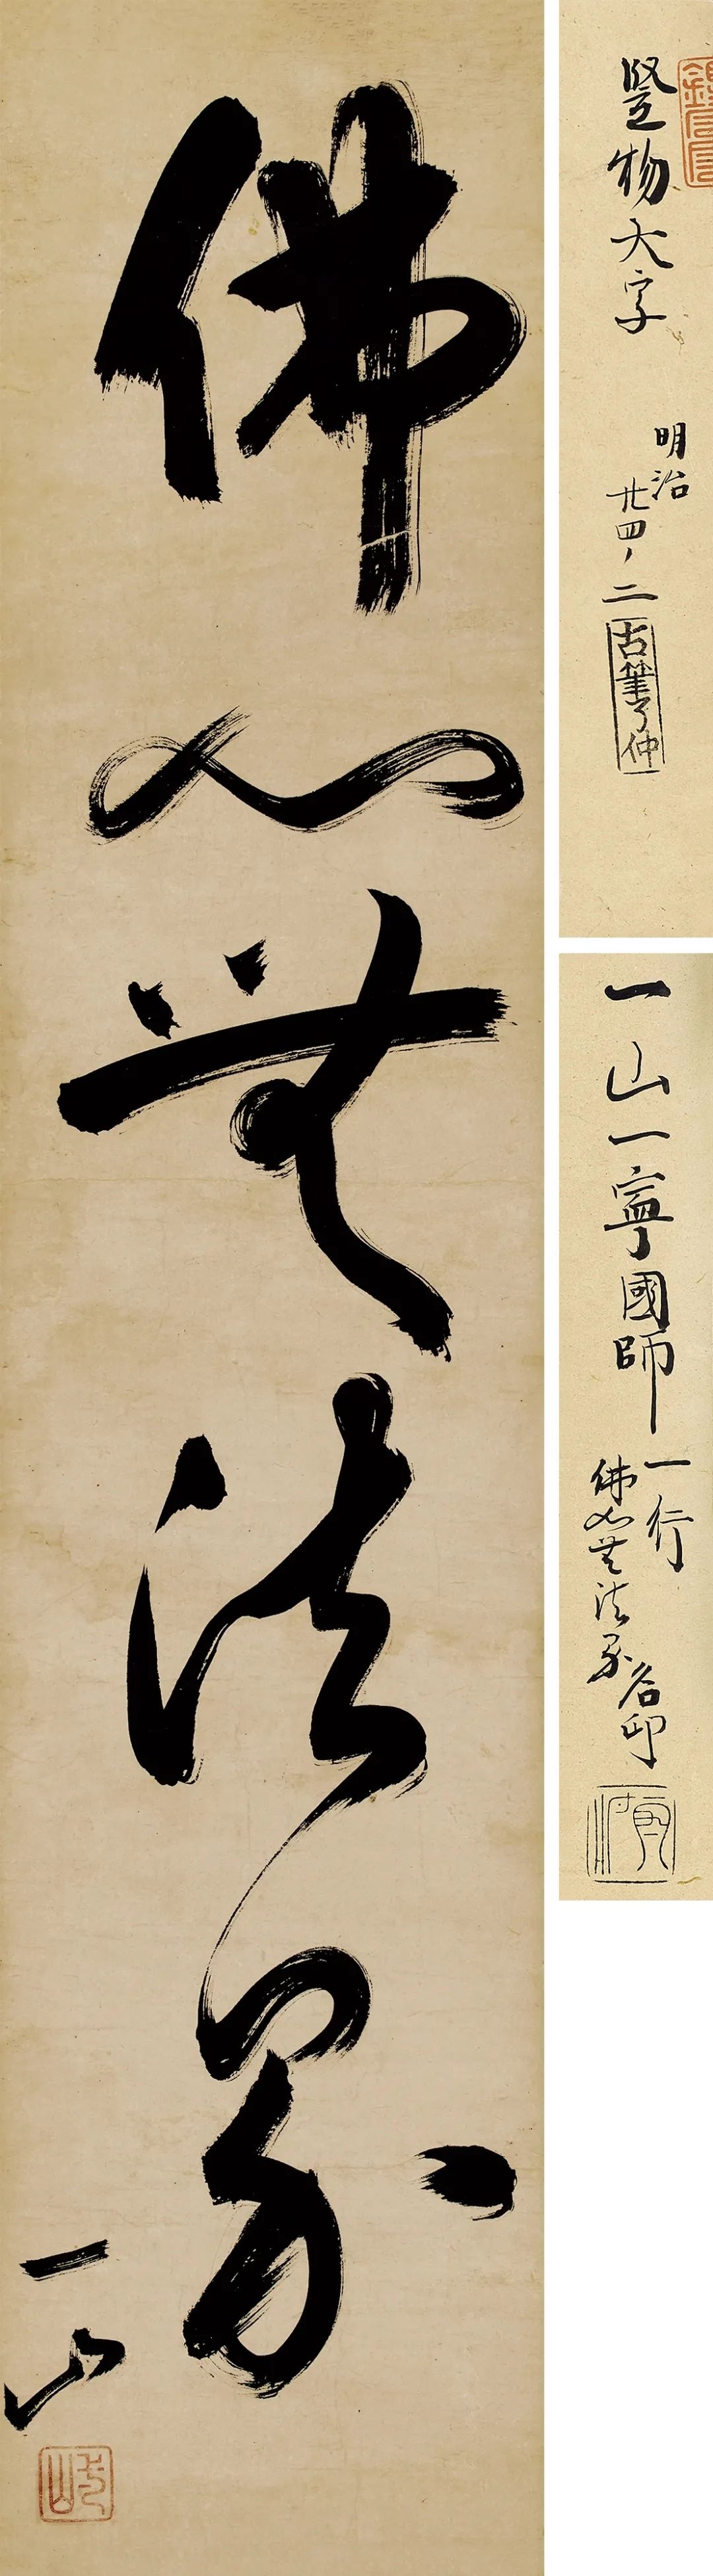 佛心無法界
一山
竪物大字
明治
廿四、二
古筆了仲
一山一寧國師
一行
佛心無法界
名印